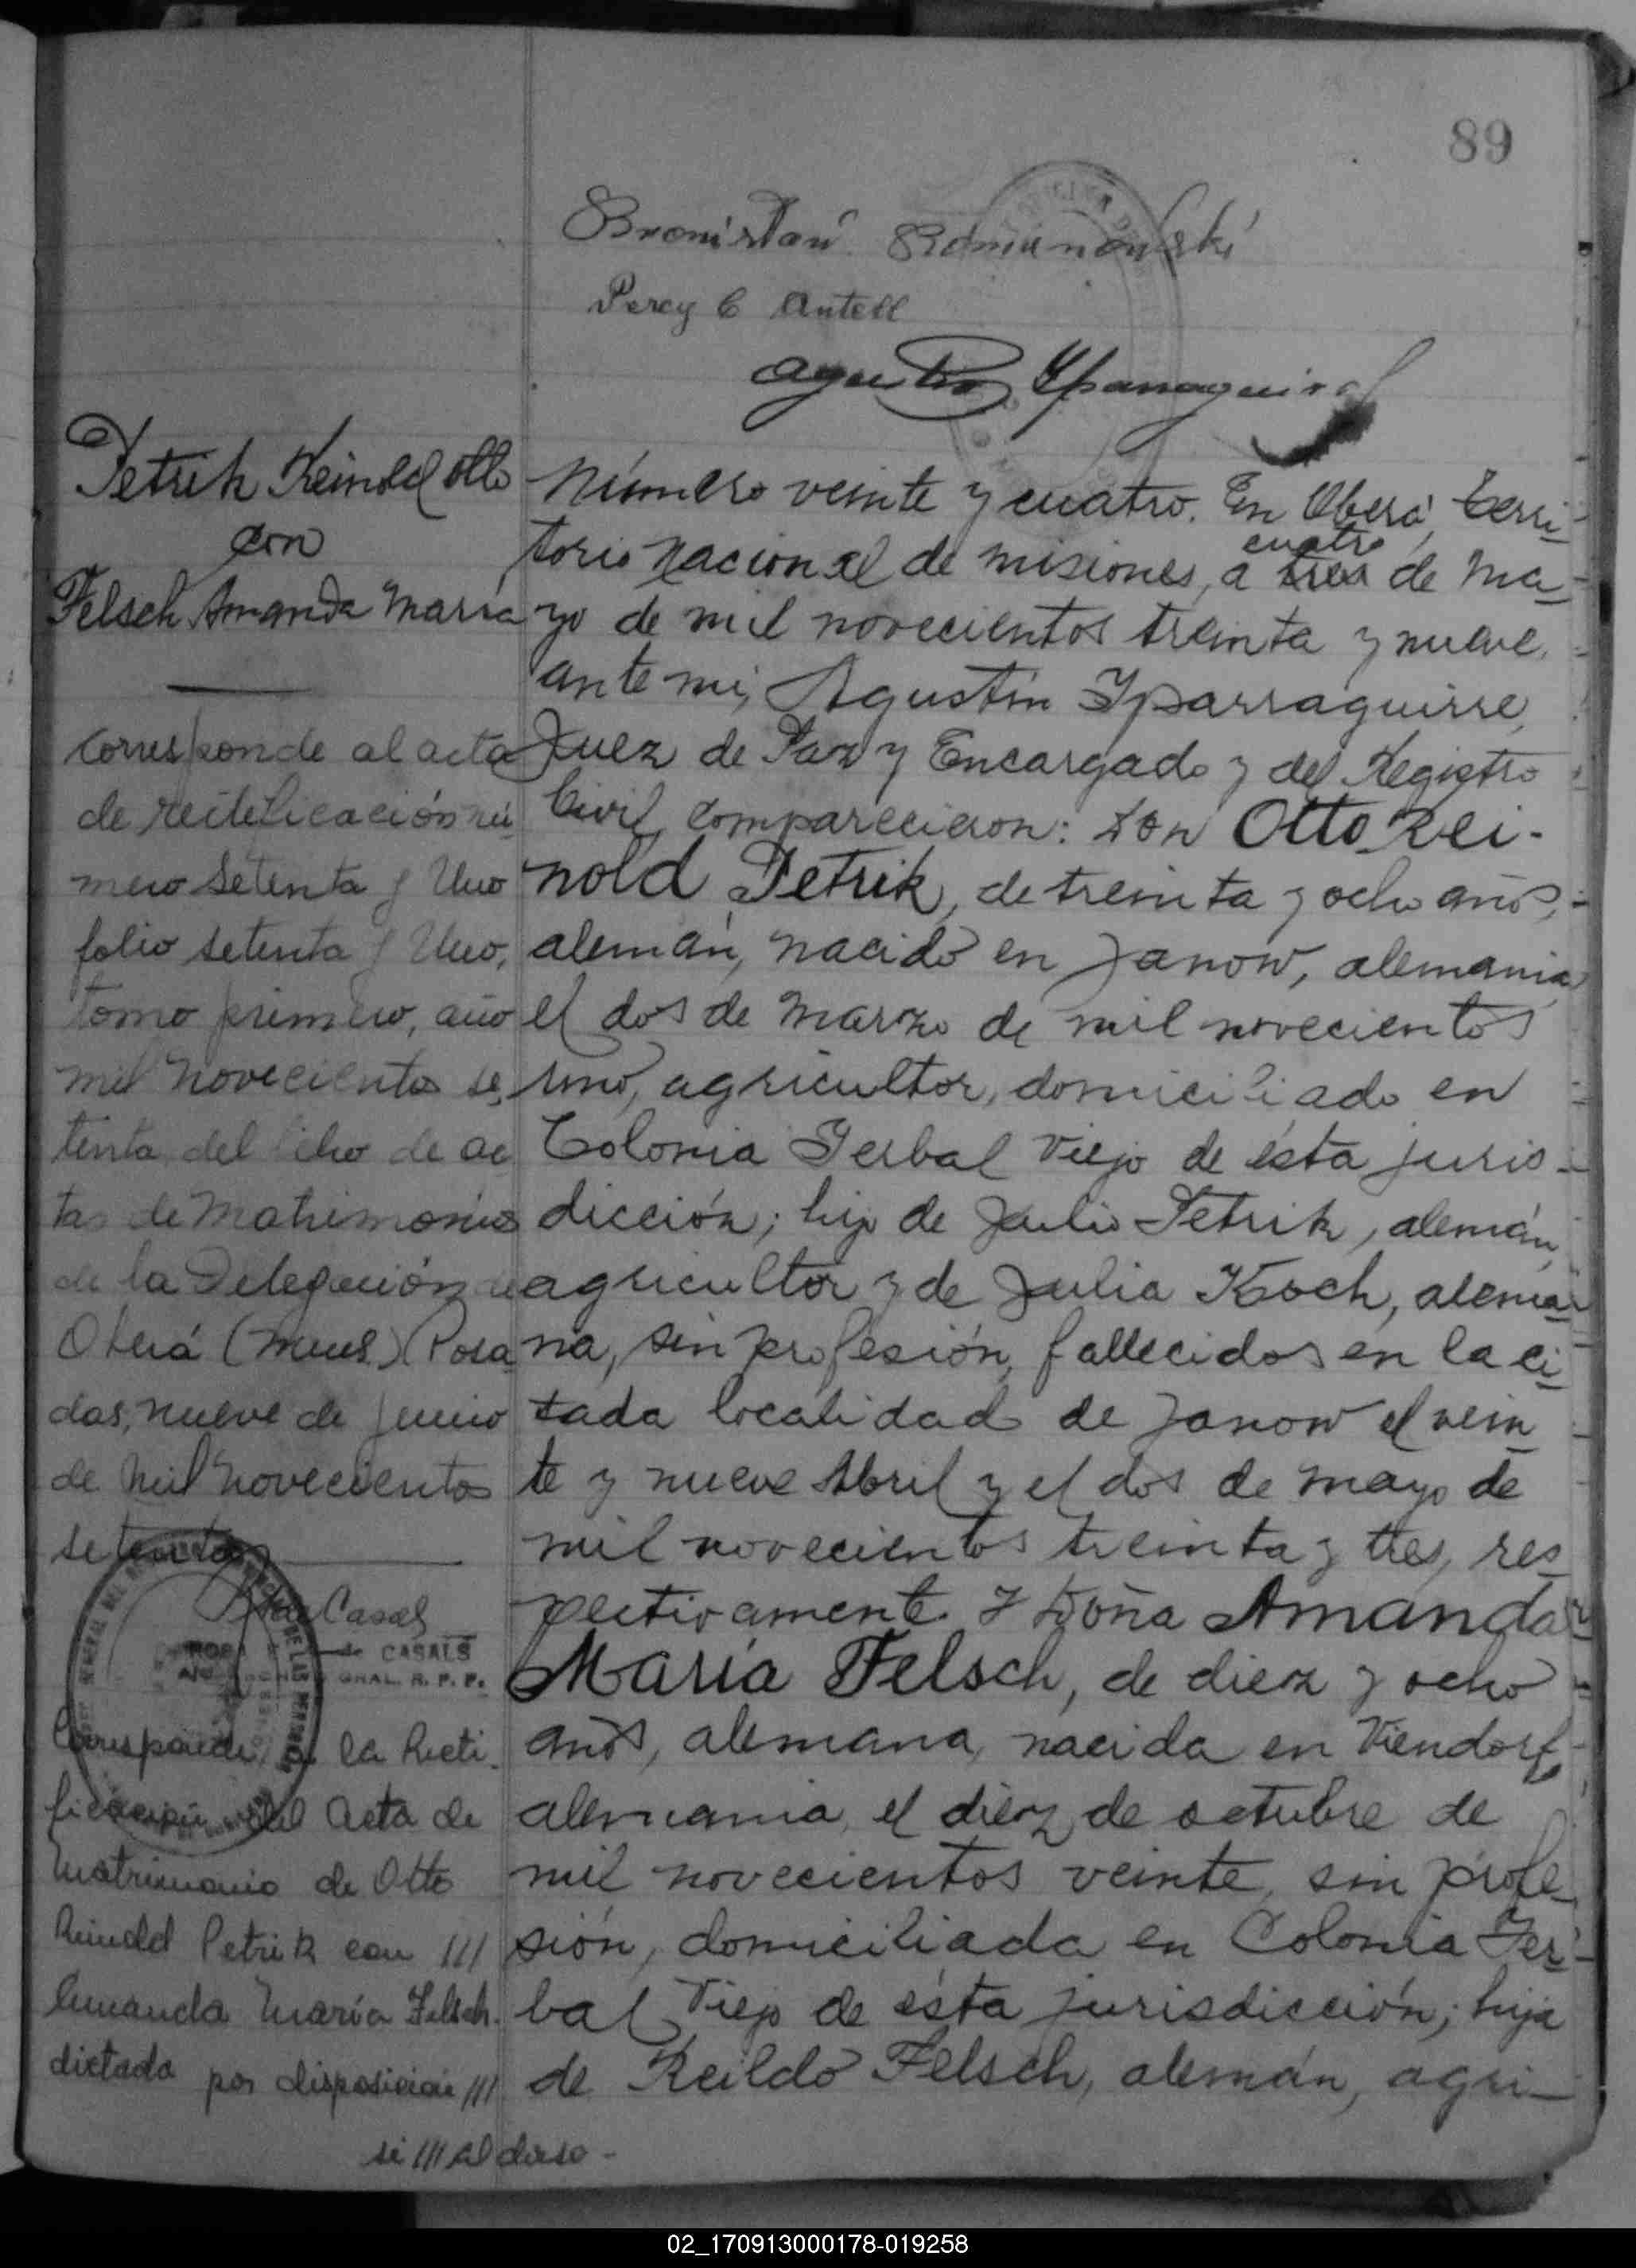 89
Bronisław Romanowski
Percy C Antell
Agustin Yparraguirre
Petrik Reinold Otto
con
Felsch Amanda María
Corresponde al acta
de rectificación nú
mero setenta y Uno
folio setenta y Uno,
tomo primero, año
mil novecientos se
tenta del libro de ac
tas de Matrimonios
de la Delegación de
Oberá (Mnes.) Posa
das, nueve de junio
de mil novecientos
setenta
Casals
ROSA de CASALS
GRAL. R. P. P.
Corresponde a la Recti-
ficación del Acta de
Matrimonio de Otto
Reinold Petrik con ///
Amanda María Felsch.
dictada por disposición ///
si /// al dorso -
Número veinte y cuatro. En Oberá, Terri-
torio Nacional de Misiones, a tres cuatro de Ma-
yo de mil novecientos treinta y nueve,
ante mi, Agustín Yparraguirre,
Juez de Paz y Encargado y del Registro
Civil, comparecieron: Don Otto Rei-
nold Petrik, de treinta y ocho años,
alemán, nacido en Janow, alemania
el dos de Marzo de mil novecientos
uno, agricultor, domiciliado en
Colonia Yerbal Viejo de ésta juris-
dicción; hijo de Julio Petrik, alemán,
agricultor y de Julia Koch, alema-
na, sin profesión, fallecidos en la ci-
tada localidad de Janow el vein
te y nueve Abril y el dos de mayo de
mil novecientos treinta y tres, res-
pectivamente. Y Doña Amanda
María Felsch, de diez y ocho
años, alemana, nacida en Viendorf,
alemania, el diez de octubre de
mil novecientos veinte, sin profe-
sión, domiciliada en Colonia Yer-
bal Viejo de ésta jurisdicción; hija
de Reildo Felsch, alemán, agri-
02_170913000178-019258